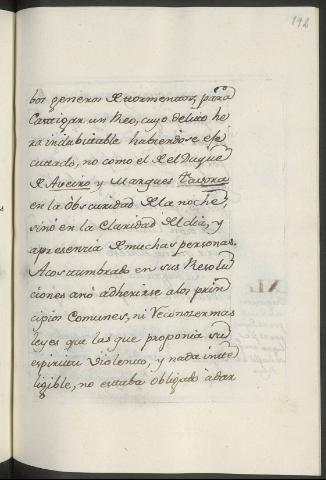 192
bos generos de tormentos, para
Castigar un Reo, cuyo delito he
ra indubitable habiendose efe
cutado, no como el de el Duque
de Aveiro y Marques Tavora
en la obscuridad de la noche,
sinó en la Claridad del dia, y
apresenzia de muchas personas.
Acostumbrado en sus Resolu
ciones anó adherirse alos prin
cipios Comunes, ni Reconozer mas
leyes que las que proponia su
espiritu Violento, y nada inte
ligible, no estaba obligado á dar